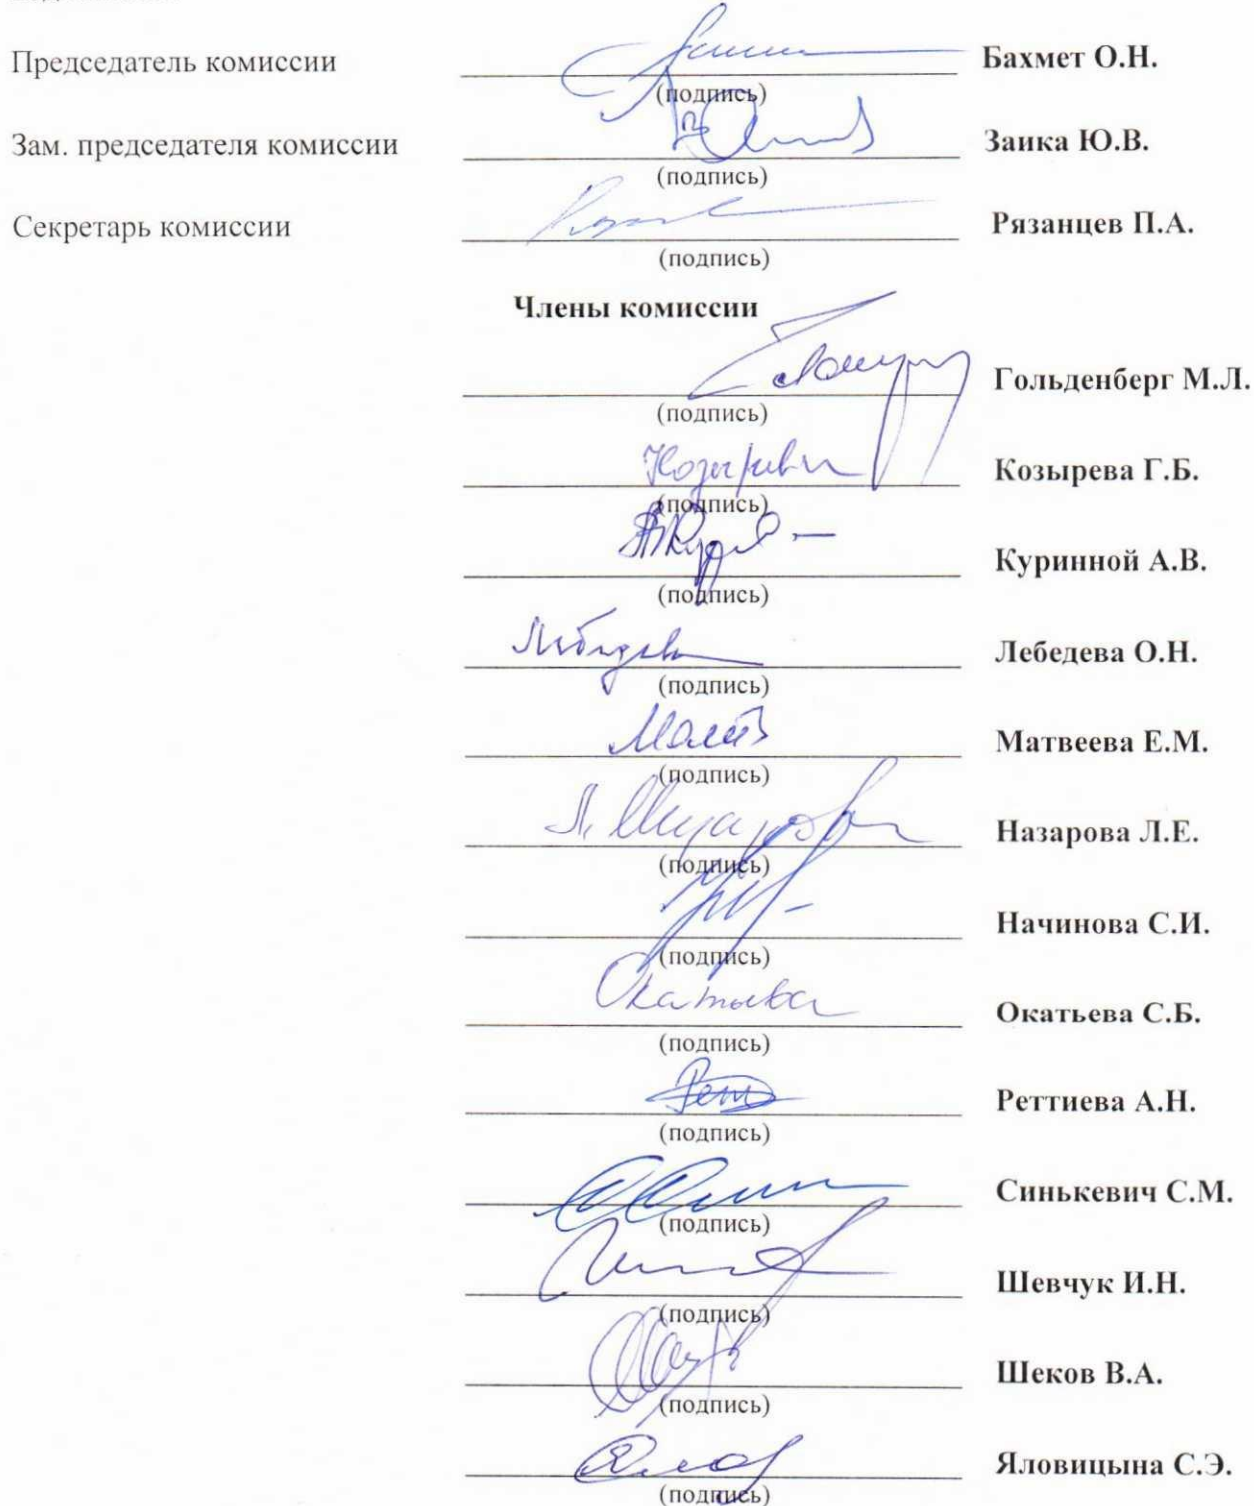 Председатель комиссии Бахмет О.Н.
(подпись)
Зам. председателя комиссии Заика Ю.В.
(подпись)
Секретарь комиссии Рязанцев П.А.
(подпись)
Члены комиссии
Гольденберг М.Л.
(подпись)
Козырева Г.Б.
(подпись)
Куринной А.В.
(подпись)
Лебедева О.Н.
(подпись)
Матвеева Е.М.
(подпись)
Назарова Л.Е.
(подпись)
Начинова С.И.
(подпись)
Окатьева Окатьева С.Б.
(подпись)
Реттиева А.Н.
(подпись)
Синькевич С.М.
(подпись)
Шевчук И.Н.
(подпись)
Шеков В.А.
(подпись)
Яловицына С.Э.
(подпись)